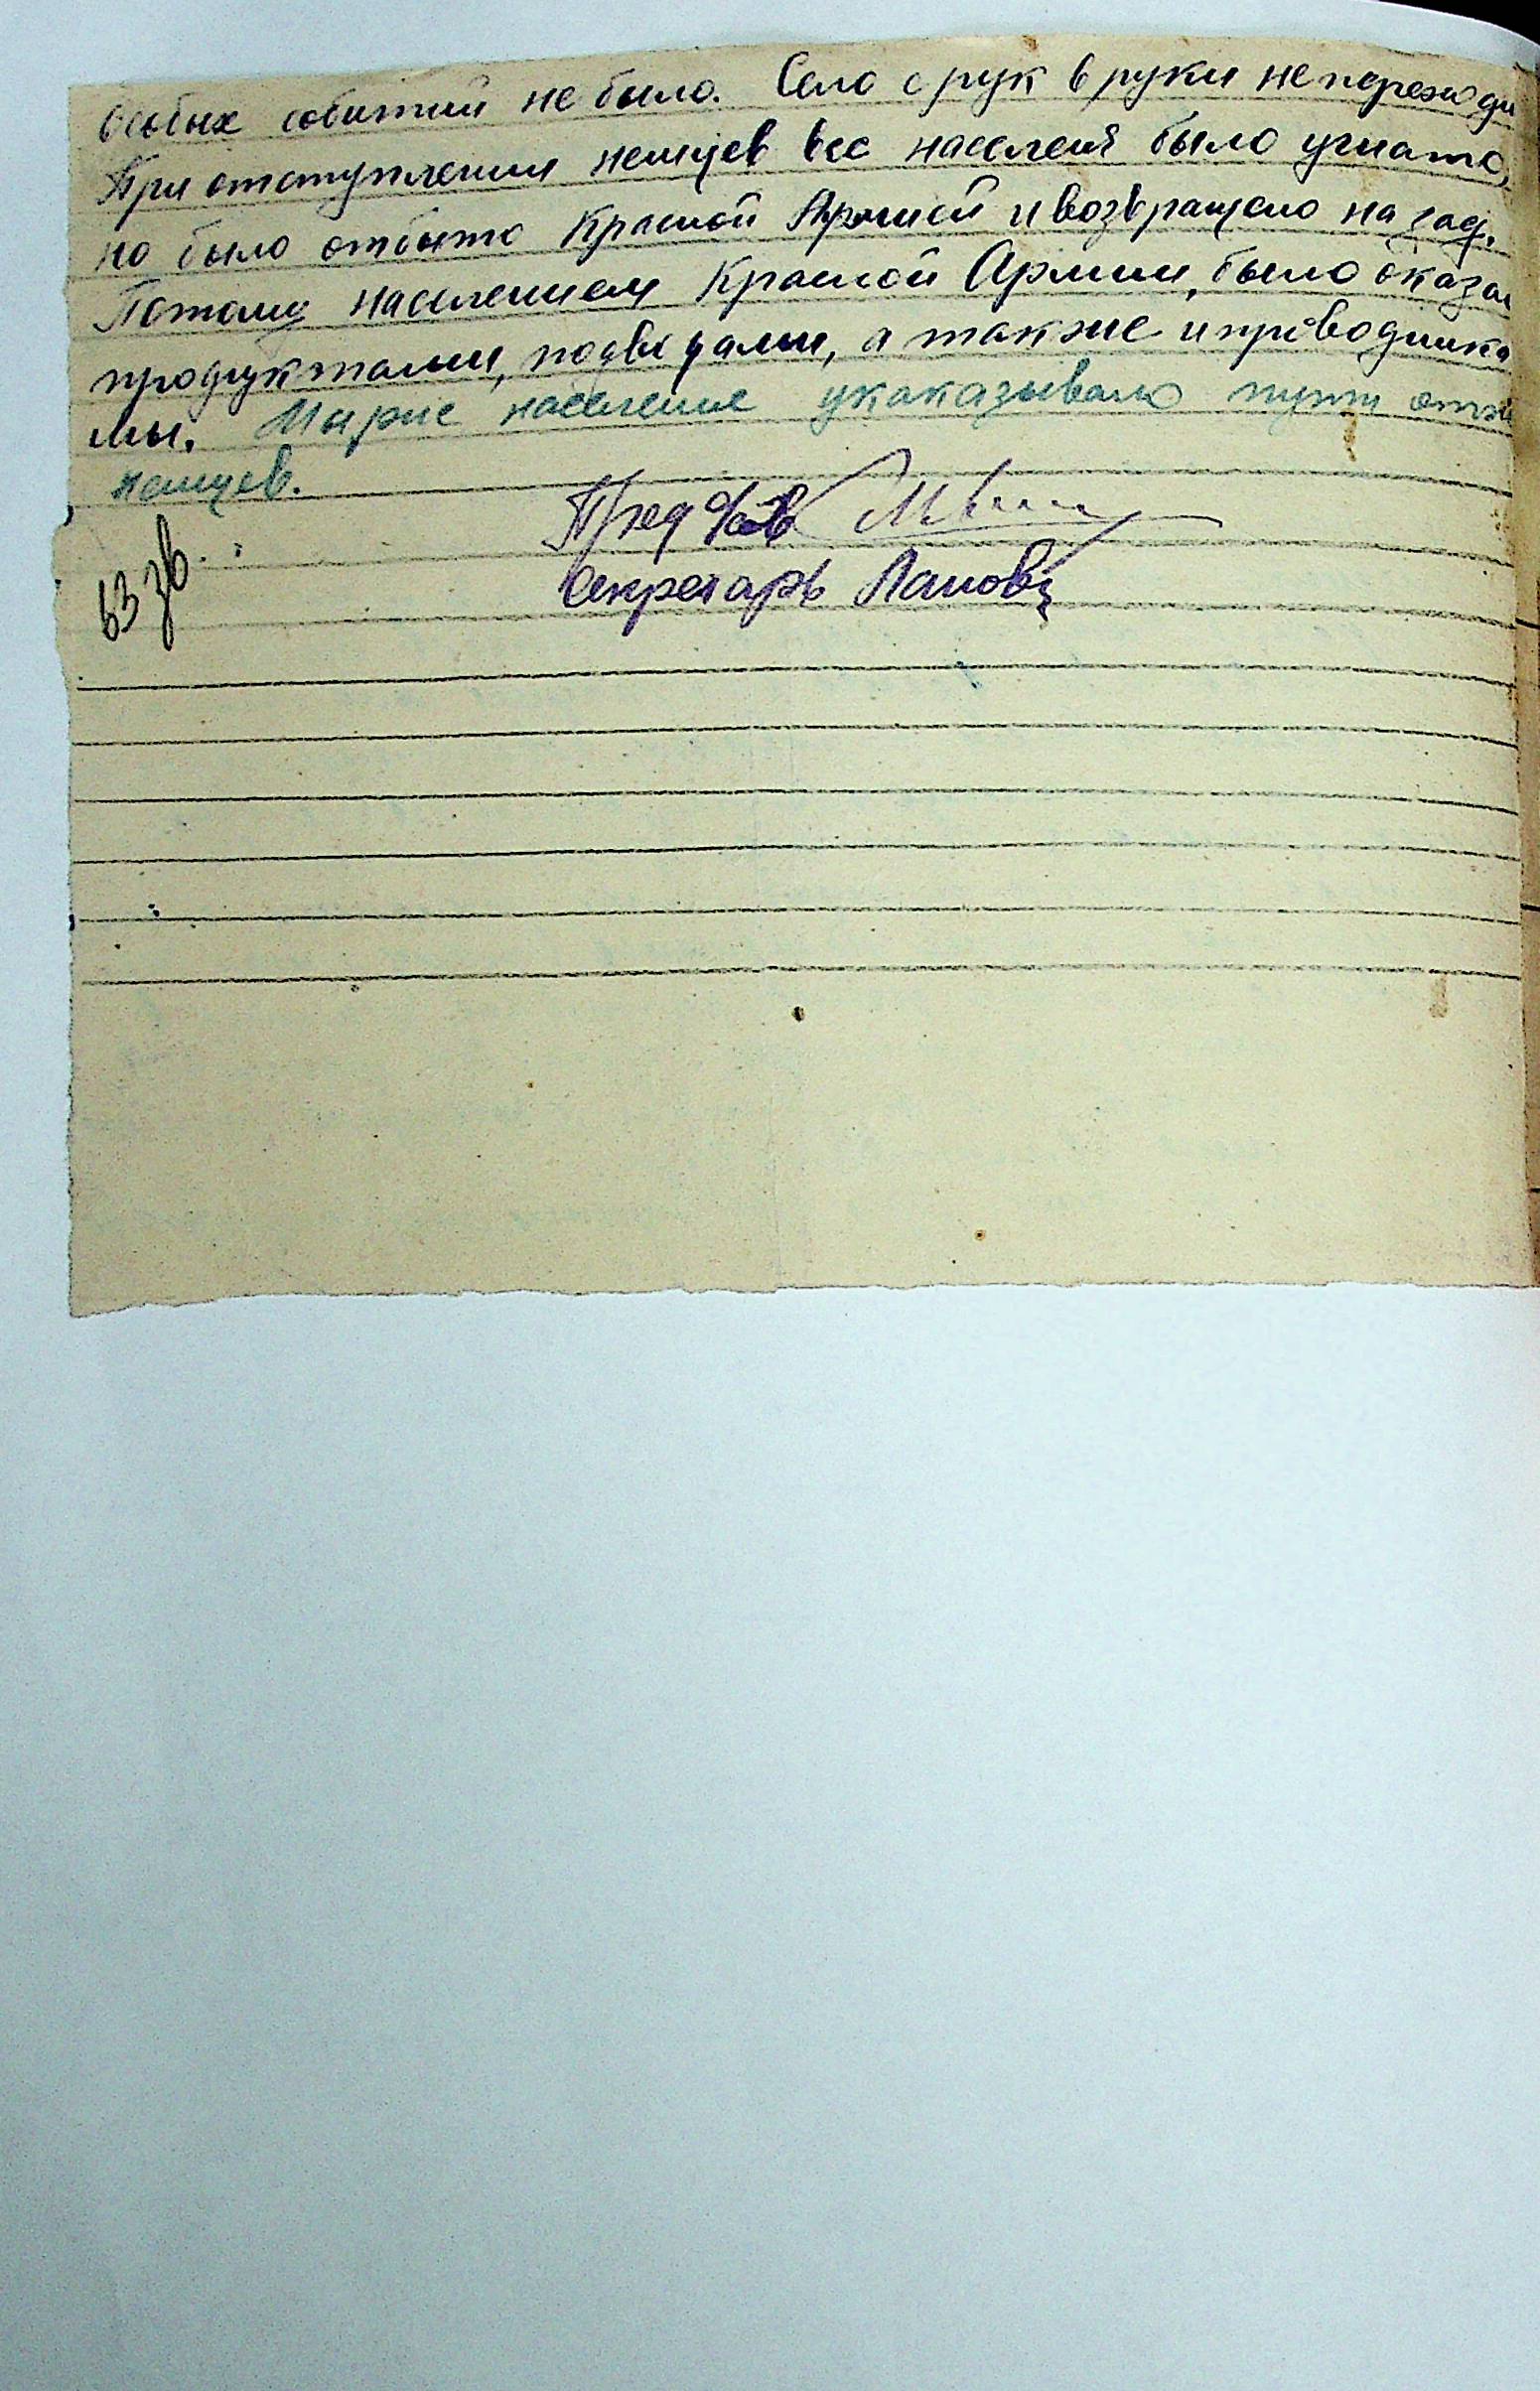 Особых событий не было. Село с рук в руки не переходи
При отступлении немцев все населеня было угнато,
но было отбыто Красной Армией и возвращено на зад.
Потому населением Красной Армии, было оказан
продуктами, подводами, а также и проводника
мы. Мирне население укаказывало пути отхо
немцев.
Пред
Секретарь
63 зв.